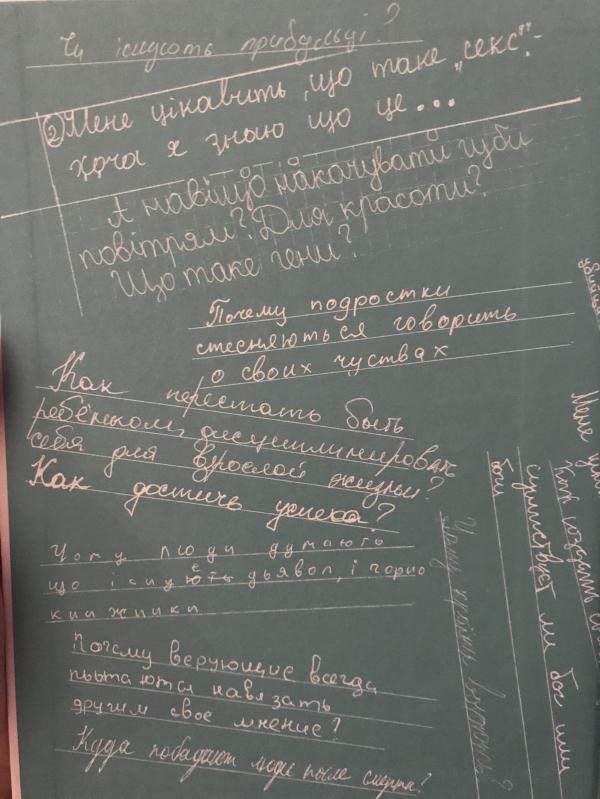 Чи існують прибульці?
② Мене цікавить, що таке „секс“-
хоча я знаю що це...
А навіщо накачувати губи
повітрям? Для красоти?
Що таке гени?
Почему подростки
стесняються говорить
о своих чуствах
Как перестать быть
ребёнком, дисциплинировать
себя для взрослой жизни?
Как достичь успеха?
Чому люди думають
що існує дьявол, і чорно
книжники
Почему верующие всегда
пытаются навязать
другим свое мнение?
Куда попадают люде после смерти?
Чому
Мене
существует ли бог или
боги